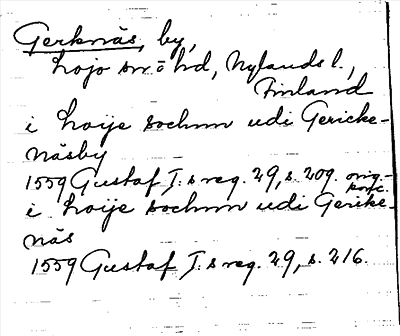 Gerknäs, by,
Lojo sn o hd, Nylands l.,
Finland
i Loije sochnn udi Gericke-
näsby
1559 Gustaf I:s reg. 29, s. 209. orig.-
konc.
i Loije sochnn udi Gerike-
näs
1559 Gustaf I:s reg. 29, s. 216.